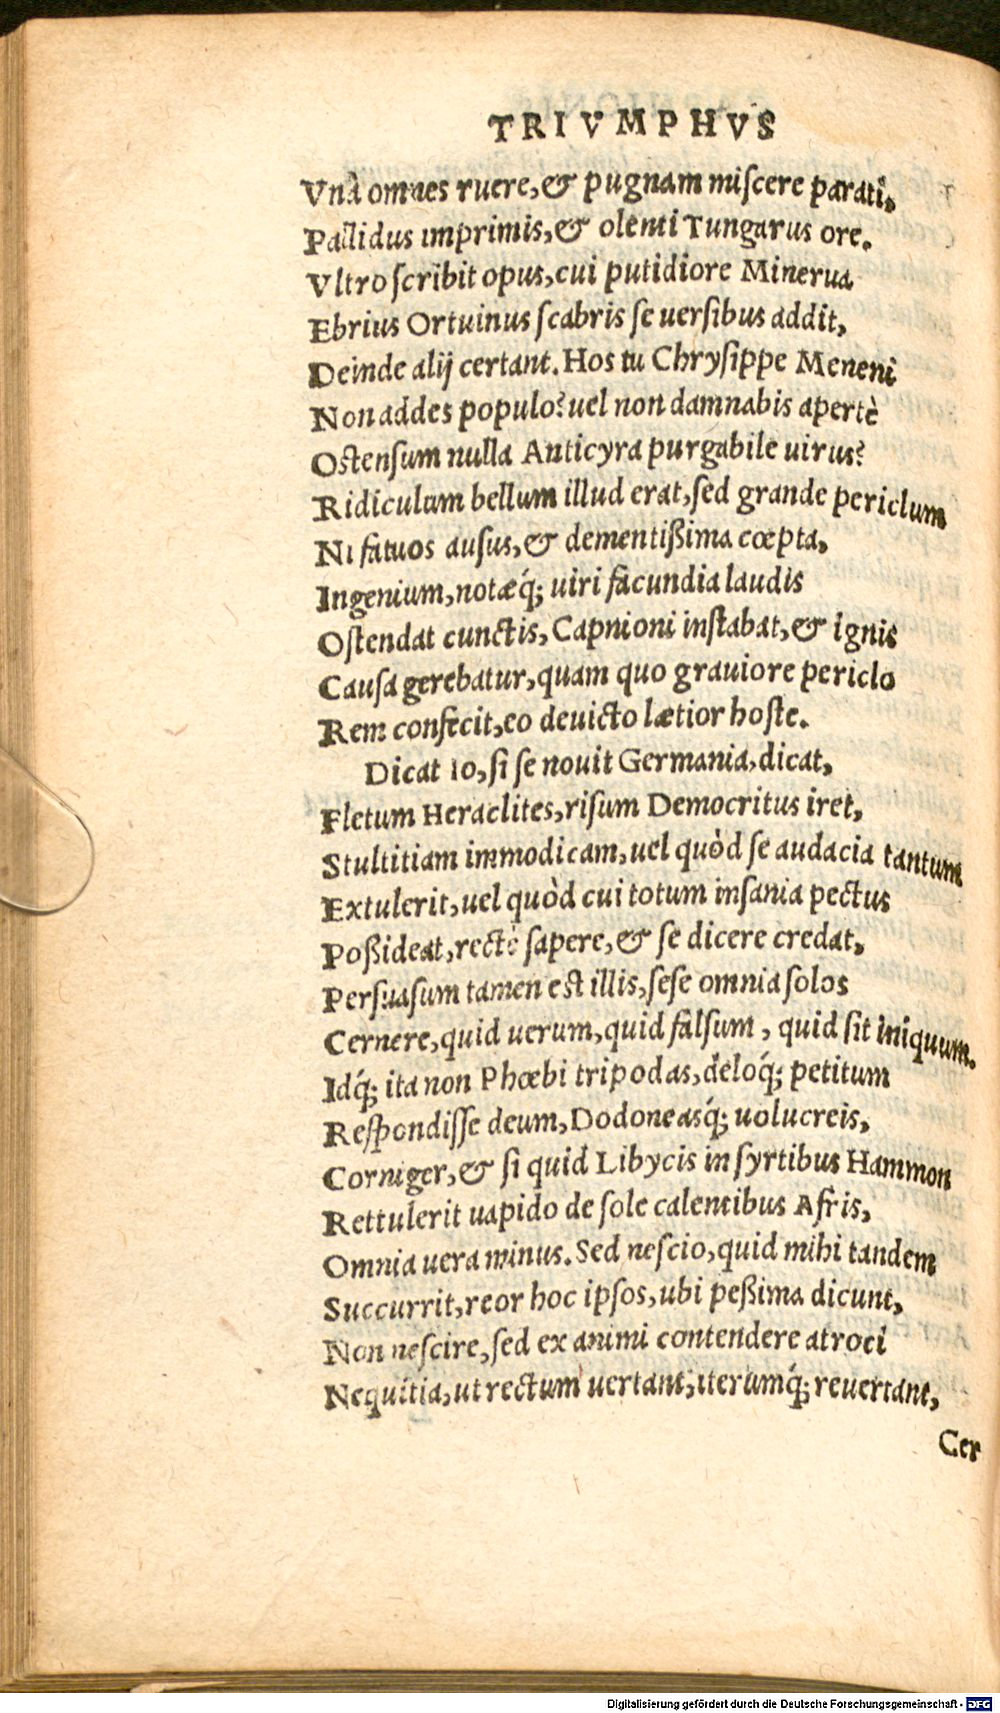 TRIVMPHVS
Vnà omnes ruere,& pugnam miſcere parati,
Pallidus imprimis,& olenti Tungarus ore.
Vltro ſcribit opus,cui putidiore Minerua
Ebrius Ortuinus ſcabris ſe uerſibus addit,
Deinde alij certant. Hos tu Chryſippe Meneni
Non addes populo? uel non damnabis apertè
Oſtenſum nulla Anticyra purgabile uirus?
Ridiculum bellum illud erat,ſed grande periclum
Ni fatuos auſus,& dementißima cœpta,
Ingenium,notæq́; uiri facundia laudis
Oſtendat cunctis, Capnioni inſtabat,& ignis
Cauſa gerebatur,quam quo grauiore periclo
Rem confecit,eo deuicto lætior hoſte.
Dicat io,ſi ſe nouit Germania,dicat,
Fletum Heraclites,riſum Democritus iret,
Stultitiam immodicam,uel quòd ſe audacia tantum
Extulerit,uel quòd cui totum inſania pectus
Poßideat,rectè ſapere,& ſe dicere credat,
Perſuaſum tamen eſt illis,ſeſe omnia ſolos
Cernere,quid uerum,quid falſum, quid ſit iniquum.
Idq́; ita non Phœbi tripodas,deloq́; petitum
Reſpondiſſe deum,Dodoneasq́; uolucreis,
Corniger,& ſi quid Libycis in ſyrtibus Hammon
Rettulerit uapido de ſole calentibus Afris,
Omnia uera minus. Sed neſcio,quid mihi tandem
Succurrit,reor hoc ipſos,ubi peßima dicunt,
Non neſcire,ſed ex animi contendere atroci
Nequitia,ut rectum uertant,iterumq́; reuertant,
Cer
Digitalisierung gefördert durch die Deutsche Forschungsgemeinschaft - DFG